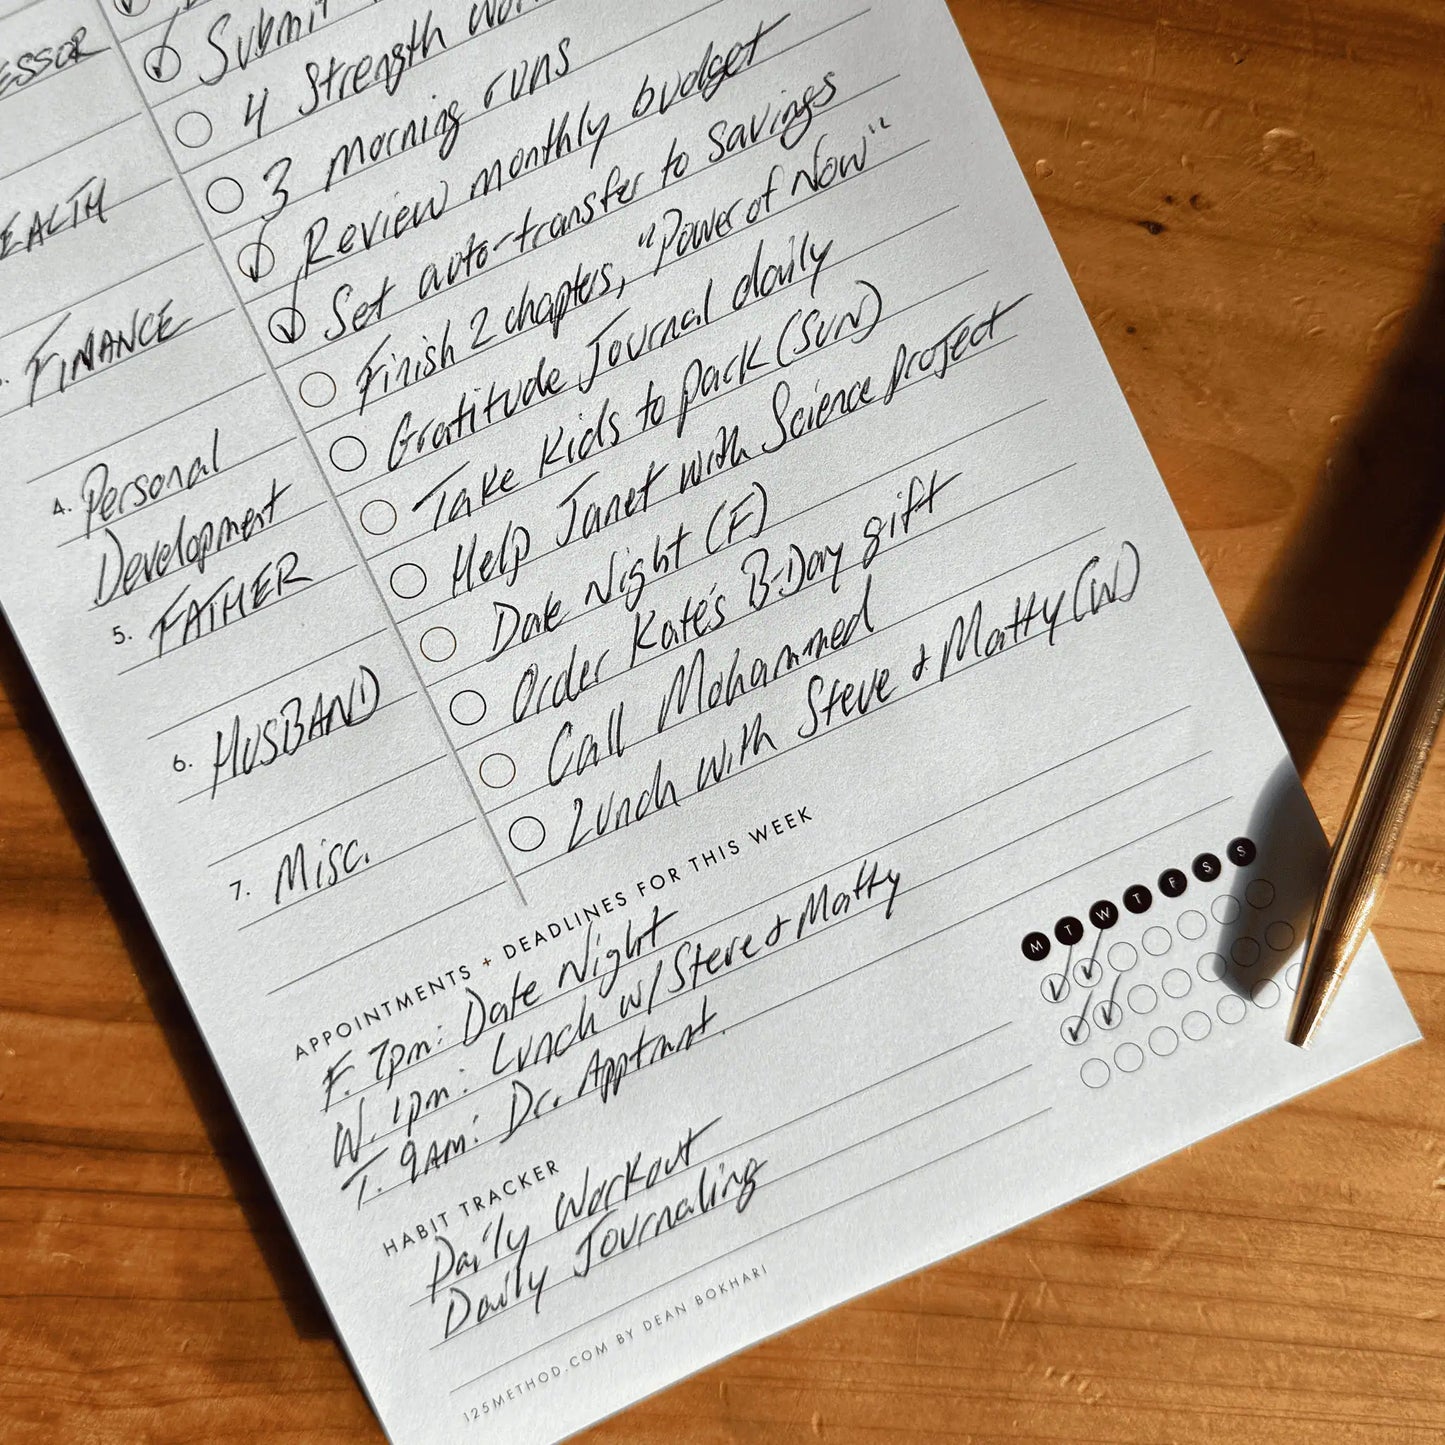 Submit
ESSOR
4 Strength Wor
3 morning runs
EALTH
Review monthly budget
Set auto-transfer to savings
FINANCE
Finish 2 chapters, "Power of Now"
Gratitude Journal daily
4. Personal
Development
Take kids to park (SUN)
Help Janet with Science project
5. FATHER
Date Night (F)
Order Kate's B-Day gift
6. HUSBAND
Call Mohammed
Lunch with Steve & Matty (W)
7. Misc.
APPOINTMENTS + DEADLINES FOR THIS WEEK
F. 7pm: Date Night
W. 1pm: Lunch w/ Steve & Matty
T. 9AM: Dr. Apptmnt.
HABIT TRACKER
M T W T F S S
Daily Workout
Daily Journaling
125METHOD.COM BY DEAN BOKHARI